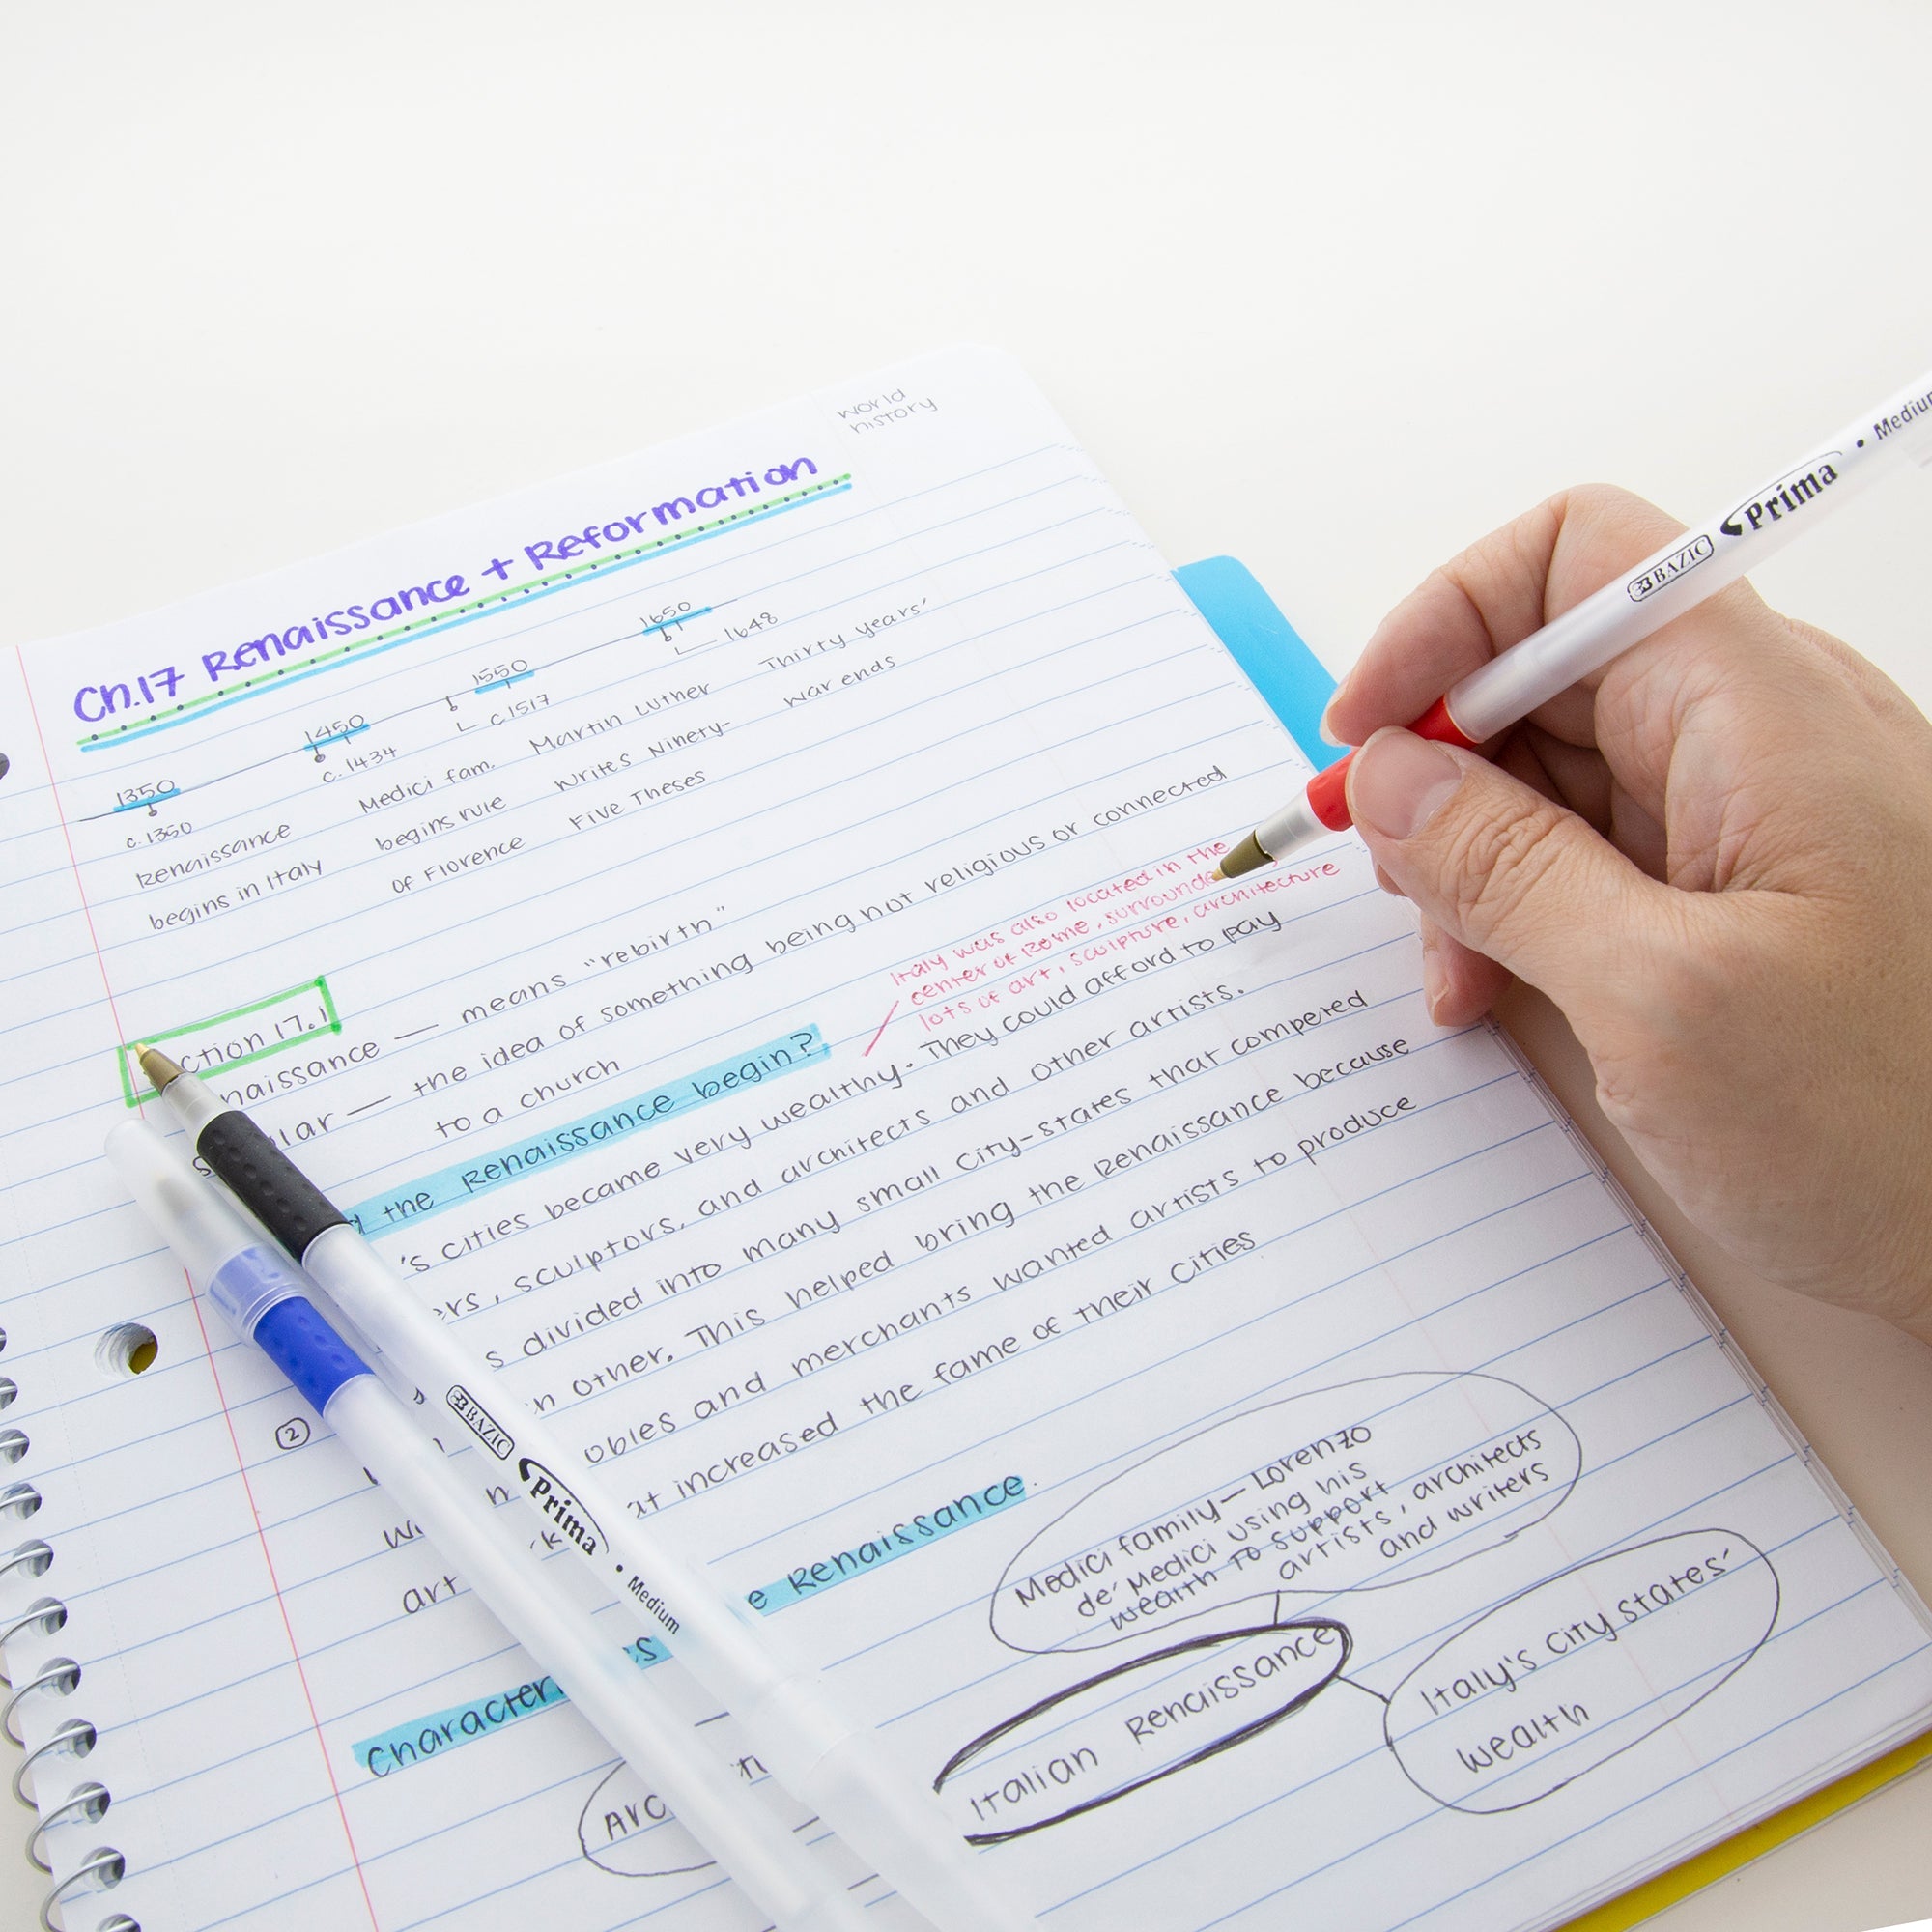 world
history
Ch.17 Renaissance + Reformation
1350 1450 1550 1650
c. 1350 c. 1434 c 1517 1648
Renaissance Medici fam. Martin Luther Thirty years'
begins in Italy begins rule writes Ninety- war ends
of Florence Five Theses
ction 17.1
naissance — means "rebirth"
lar — the idea of something being not religious or connected
to a church
Italy was also located in the
center of Rome, surrounde
lots of art, sculpture, architecture
d the Renaissance begin?
's cities became very wealthy. They could afford to pay
ers, sculptors, and architects and other artists.
s divided into many small city-states that competed
h other. This helped bring the Renaissance because
obles and merchants wanted artists to produce
art
at increased the fame of their cities
②
e Renaissance.
Character s
Medici family — Lorenzo
de' Medici using his
wealth to support
artists, architects
and writers
Italian Renaissance
Italy's city states'
wealth
Arc
BAZIC Prima • Medium
BAZIC Prima • Medium